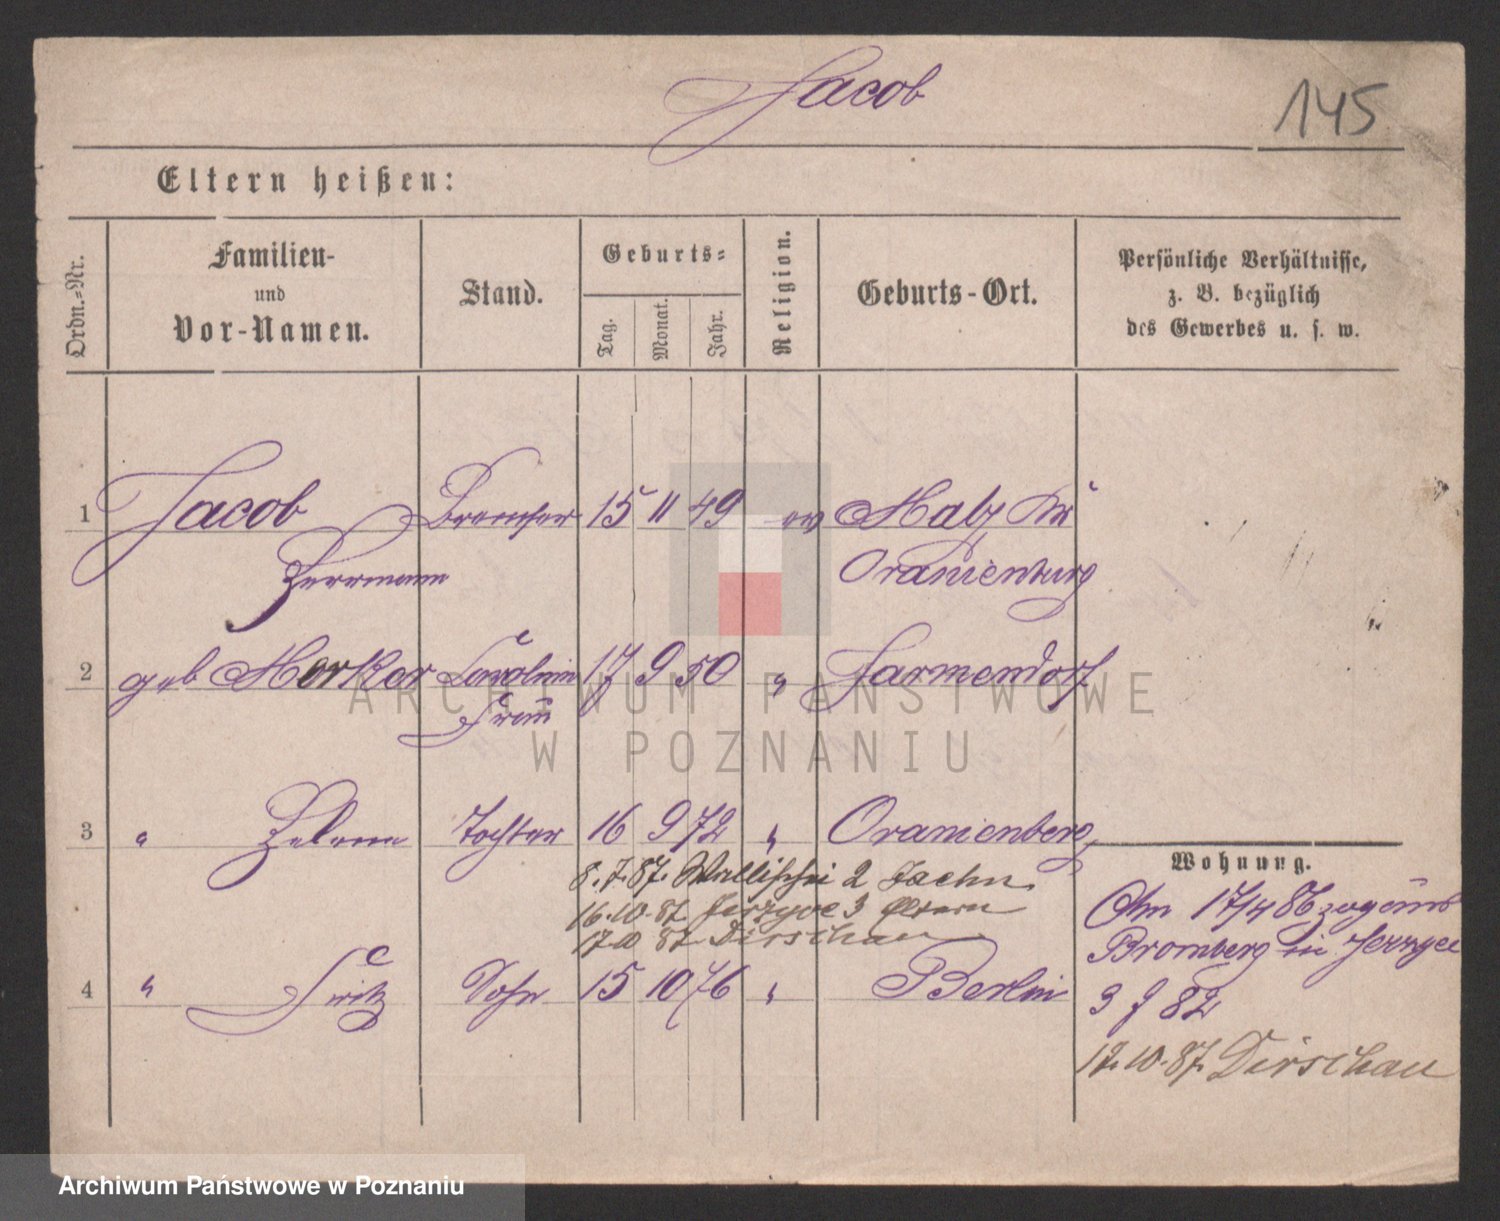 Jacob
145
Eltern heißen:
Ordn.-Nr.
Familien-
und
Vor-Namen.
Stand.
Geburts-
Tag.
Monat.
Jahr.
Religion.
Geburts-Ort.
Persönliche Verhältnisse,
z. B. bezüglich
des Gewerbes u. s. w.
1 Jacob Bremser 15 11 49 ev Malz
Herrmann Oranienburg
2 geb Morker 17 9 50 " Sarmendorf
Frau
3 " Helene Tochter 16 9 72 " Oranienberg
Wohnung.
8.7.87. Wallischei 2
16.10.87 Jerzyce 3 Eltern
17 10 87 Dirschau
Am 17/4 86
Bromberg in Jerzyce
3 J 82
4 " Fritz Sohn 15 10 76 " Berlin
17.10.87. Dirschau
ARCHIWUM PAŃSTWOWE
W POZNANIU
Archiwum Państwowe w Poznaniu